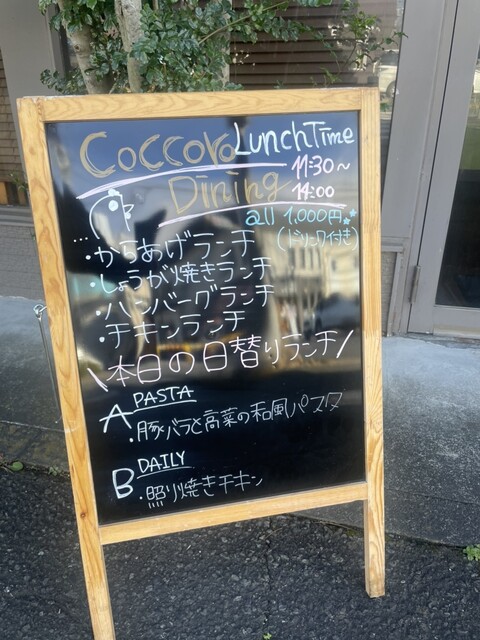 Coccoro LunchTime
11:30～
Dining 14:00
all 1,000円
(ドリンク付き)
・からあげランチ
・しょうが焼きランチ
・ハンバーグランチ
・チキンランチ
\本日の日替りランチ/
A PASTA
・豚バラと高菜の和風パスタ
B DAILY
・照り焼きチキン